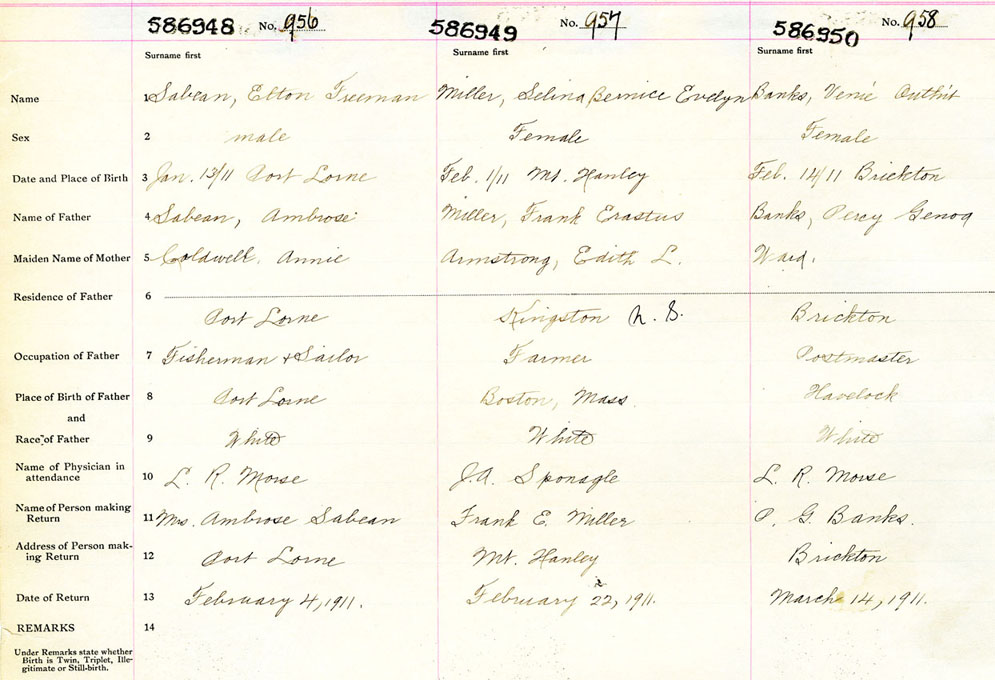 586948 No. 956 586949 No. 957 586950 No. 958
Surname first Surname first Surname first
Name 1 Sabean, Elton Freeman Miller, Selina Bernice Evelyn Banks, Venie Outhit
Sex 2 male Female Female
Date and Place of Birth 3 Jan. 13/11 Port Lorne Feb. 1/11 Mt. Hanley Feb. 14/11 Brickton
Name of Father 4 Sabean, Ambrose Miller, Frank Erastus Banks, Percy Genoa
Maiden Name of Mother 5 Coldwell, Annie Armstrong, Edith L. Ward.
Residence of Father 6
Port Lorne Kingston N. S. Brickton
Occupation of Father 7 Fisherman & Sailor Farmer Postmaster
Place of Birth of Father 8 Port Lorne Boston, Mass. Havelock
and
Race of Father 9 White White White
Name of Physician in
attendance 10 L. R. Morse J.A. Sponagle L. R. Morse
Name of Person making
Return 11 Mrs. Ambrose Sabean Frank E. Miller P. G. Banks.
Address of Person mak-
ing Return 12 Port Lorne Mt. Hanley Brickton
Date of Return 13 February 4, 1911. February 22, 1911. March 14, 1911.
REMARKS 14
Under Remarks state whether
Birth is Twin, Triplet, Ille-
gitimate or Still-birth.